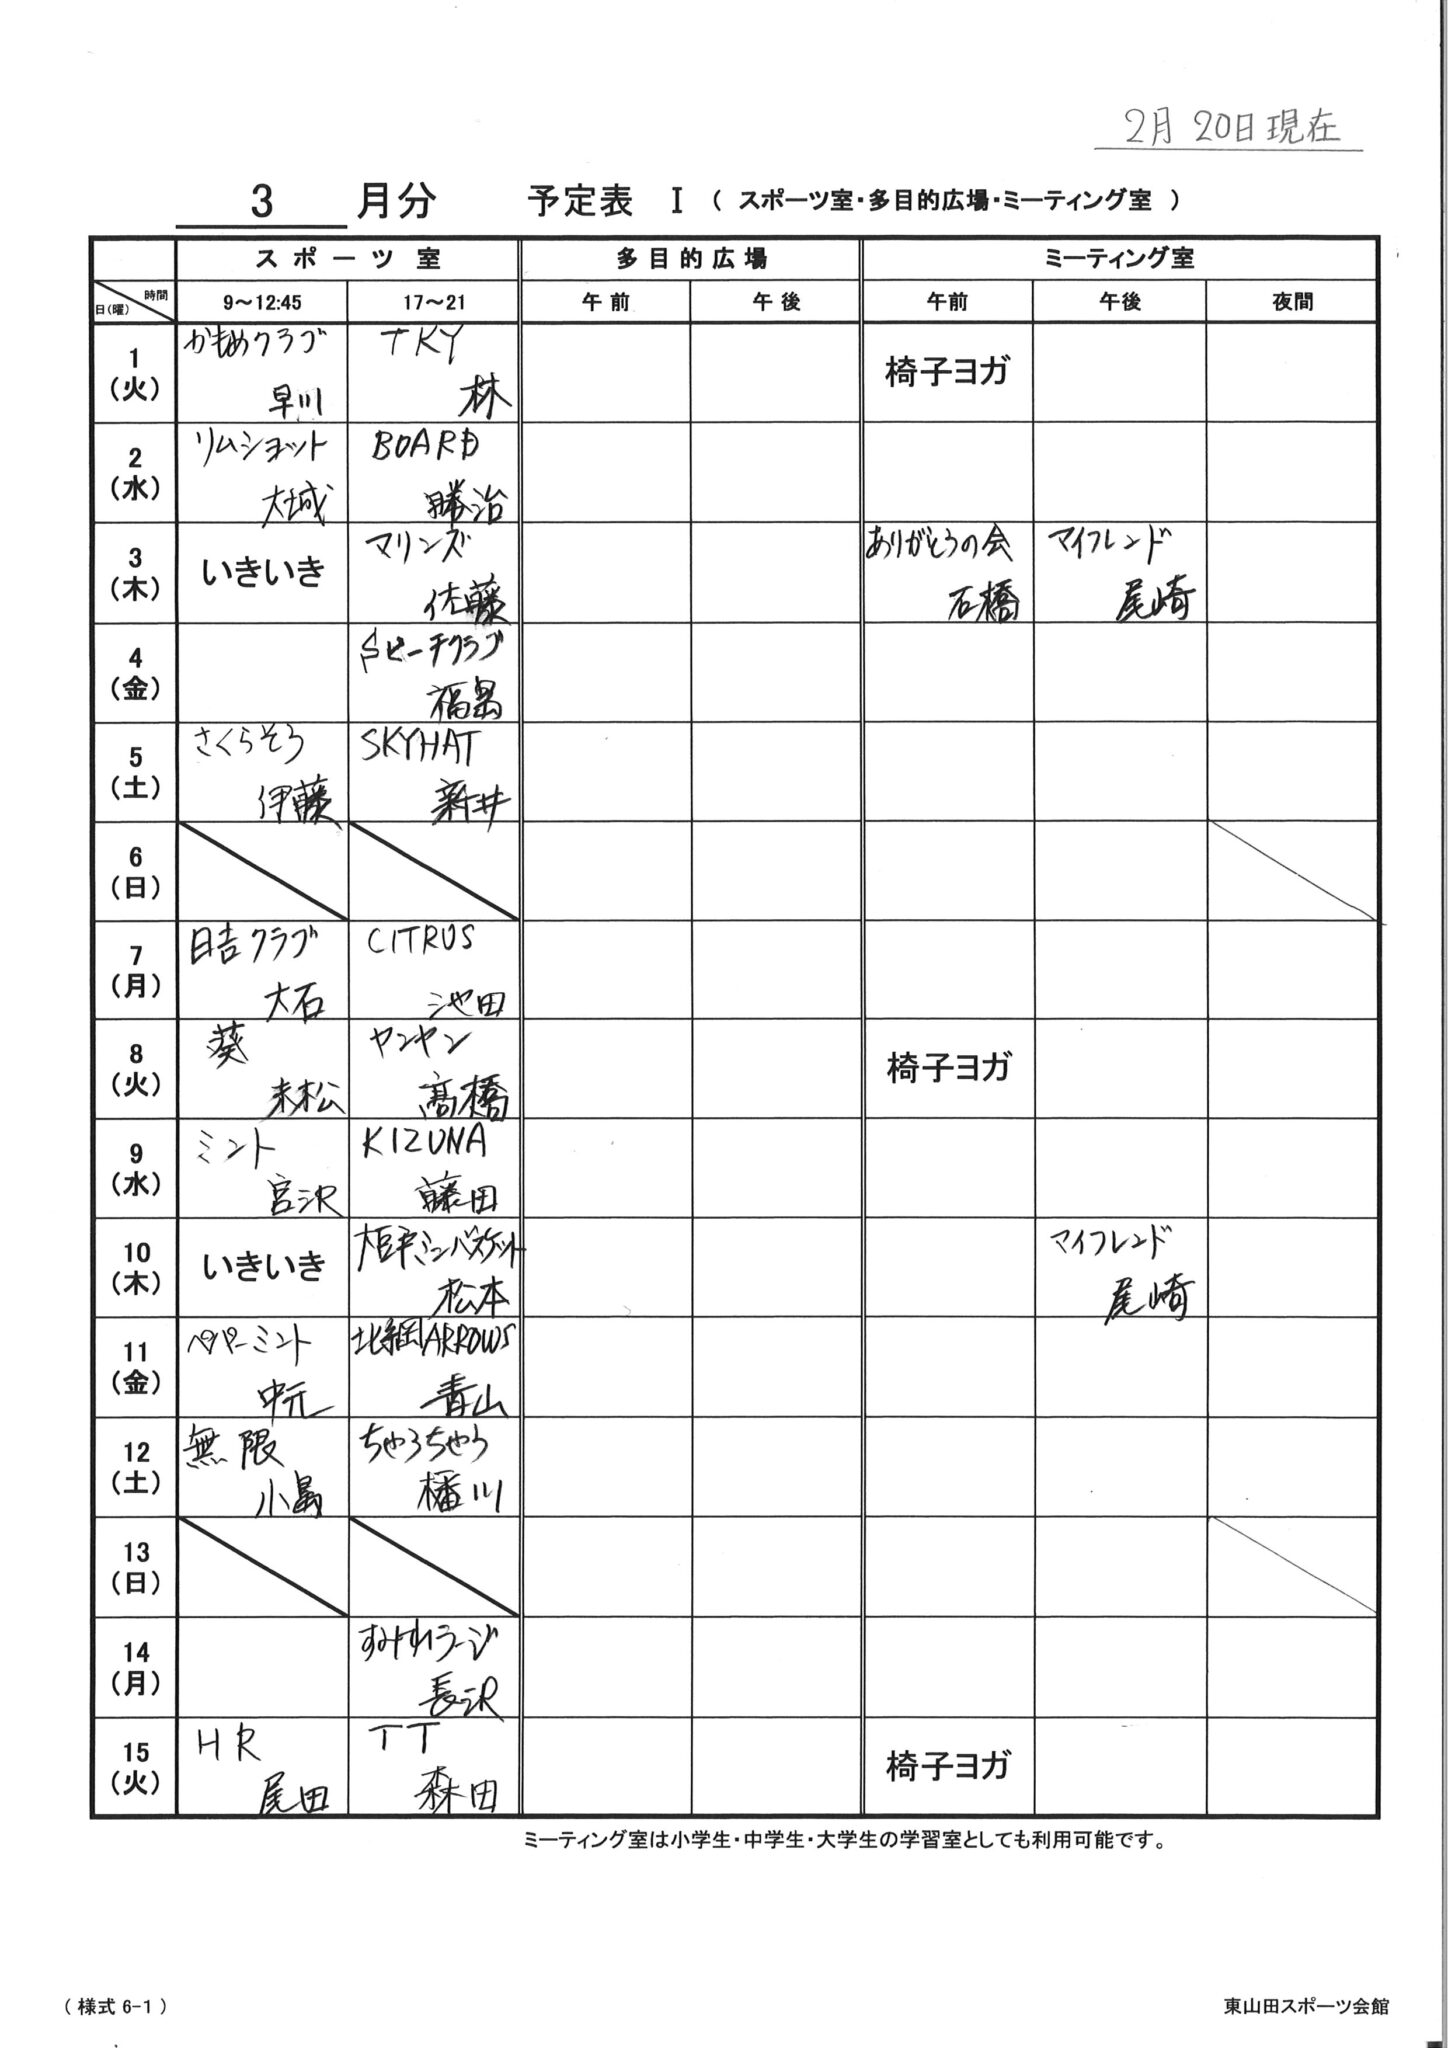 2月20日現在
3 月分 予定表 Ⅰ ( スポーツ室・多目的広場・ミーティング室 )
スポーツ室 多目的広場 ミーティング室
時間
日(曜) 9～12:45 17～21 午前 午後 午前 午後 夜間
1 かもめクラブ TKY 椅子ヨガ
(火) 早川 林
2 リムショット BOARD
(水) 大城 勝治
3 いきいき マリンズ ありがとうの会 マイフレンド
(木) 佐藤 石橋 尾崎
4 ピーチクラブ
(金) 福島
5 さくらそう SKYHAT
(土) 伊藤 新井
6
(日)
7 日吉クラブ CITRUS
(月) 大石 池田
8 葵 ヤンヤン 椅子ヨガ
(火) 末松 髙橋
9 ミント KIZUNA
(水) 宮沢 藤田
10 いきいき ミニバスケット マイフレンド
(木) 松本 尾崎
11 ペパーミント 北綱ARROWS
(金) 中元 青山
12 無限 ちゃうちゃう
(土) 小島 幡川
13
(日)
14 すみれラージ
(月) 長沢
15 HR TT 椅子ヨガ
(火) 尾田 森田
ミーティング室は小学生・中学生・大学生の学習室としても利用可能です。
( 様式 6-1 ) 東山田スポーツ会館